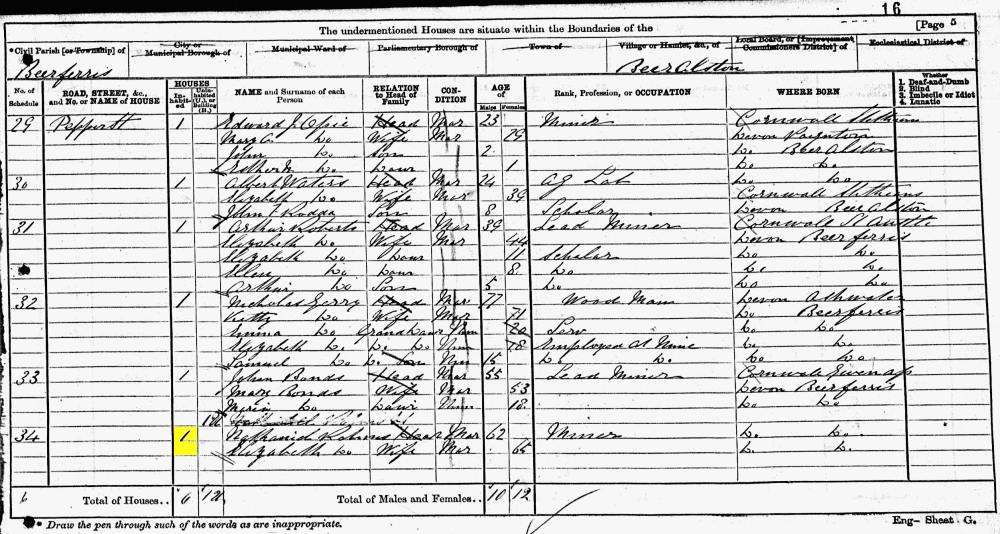 16
The undermentioned Houses are situate within the Boundaries of the [Page 5
Civil Parish [or Township] of City or Municipal Borough of Municipal Ward of Parliamentary Borough of Town of Village or Hamlet, &c., of Local Board, or [Improvement Commissioners District] of Ecclesiastical District of
Beerferris Beer Alston
No. of Schedule ROAD, STREET, &c., and No. or NAME of HOUSE HOUSES In-habit-ed Unin-habited (U.), or Building (B.) NAME and Surname of each Person RELATION to Head of Family CON-DITION AGE of Males Females Rank, Profession, or OCCUPATION WHERE BORN Whether 1. Deaf-and-Dumb 2. Blind 3. Imbecile or Idiot 4. Lunatic
29 1 Edward J Opie Head Mar 23 Miner Cornwall Stithians
Mary A. Do Wife Mar 29 Devon Paynton
John Do Son 2 Do Beer Alston
Do Daur 1 Do Do
30 1 Albert Waters Head Mar 24 Ag Lab Do Do
Elizabeth Do Wife Mar 39 Cornwall Stithians
John Rodda Son 8 Scholar Devon Beer Alston
31 1 Arthur Roberts Head Mar 39 Lead Miner Cornwall St Austle
Elizabeth Do Wife Mar 44 Devon Beerferris
Elizabeth Do Daur 11 Scholar Do Do
Ellen Do Daur 8 Do Do Do
Arthur Do Son 5 Do Do Do
32 1 Nicholas Gerry Head Mar 77 Wood Man Devon Ashwater
Kitty Do Wife Mar 71 Do Beerferris
Emma Do Grand Daur Unm 20 Serv Do Do
Elizabeth Do Do Do Unm 18 Employed at Mine Do Do
Samuel Do Do Son Unm 15 Do Do Do Do
33 1 Bonds Head Mar 55 Lead Miner Cornwall Gwenap
Mary Bonds Wife Mar 53 Devon Beerferris
Do Daur Unm 18 Do Do
1U
34 1 Nathaniel Head Mar 62 Miner Do Do
Elizabeth Do Wife Mar 65 Do Do
6 Total of Houses.. 6 1U Total of Males and Females.. 10 12
* Draw the pen through such of the words as are inappropriate. Eng— Sheet G.